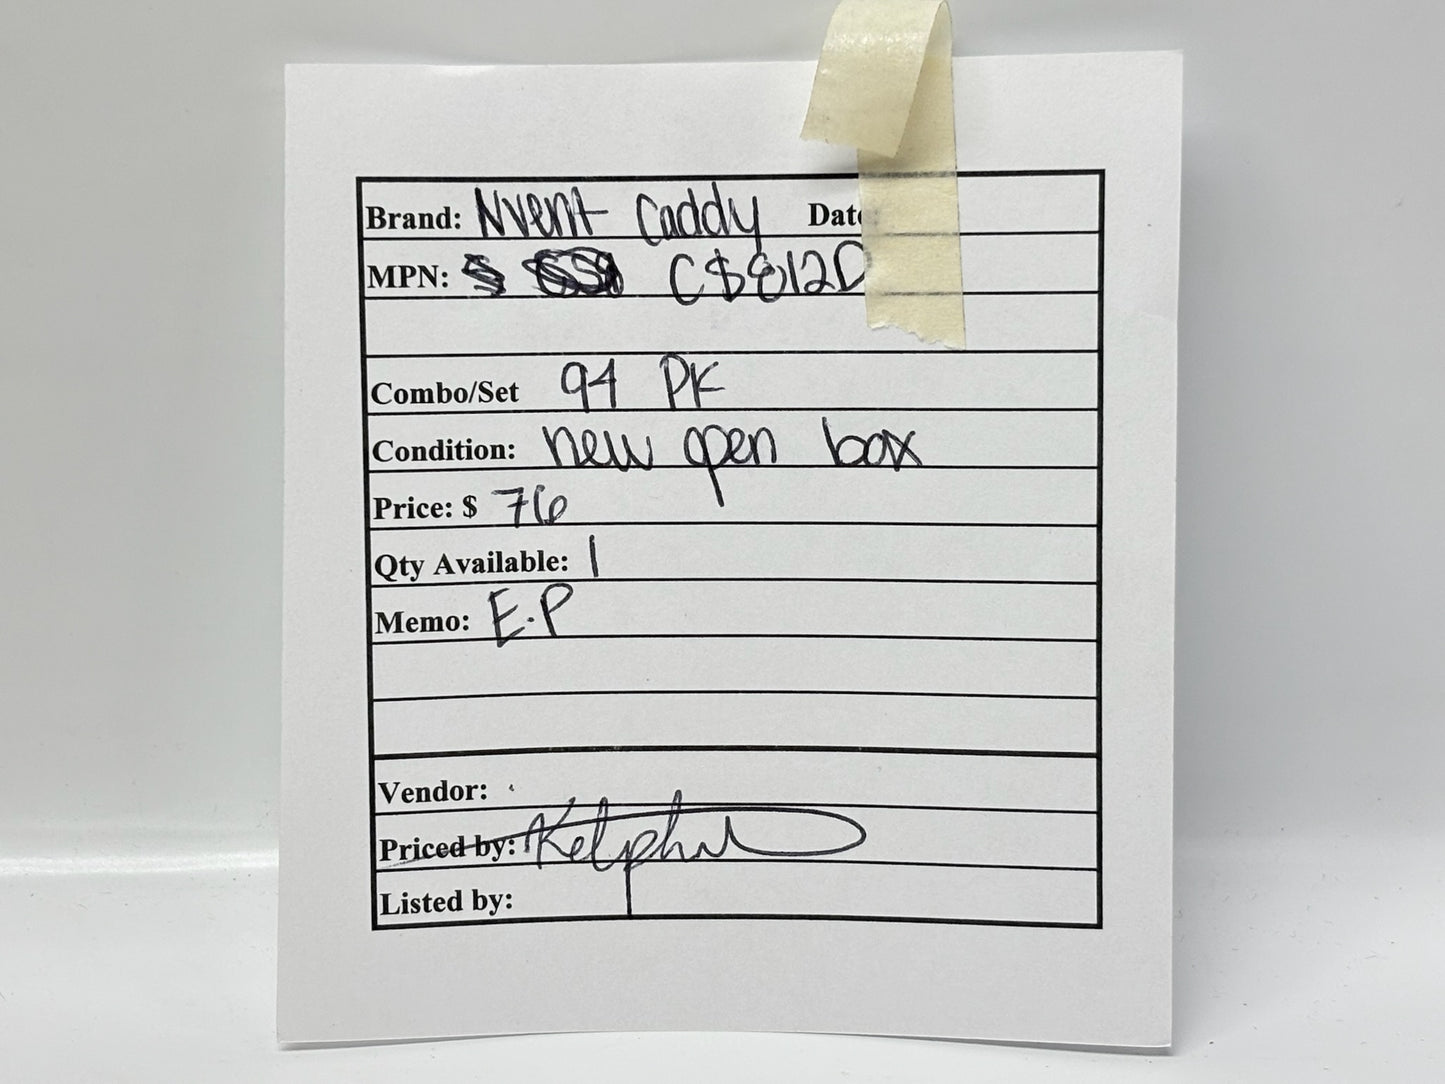 Brand: Nvent Caddy Date
MPN: C$812D
Combo/Set 94 PK
Condition: new open box
Price: $ 76
Qty Available: 1
Memo: E.P
Vendor:
Priced by:
Listed by: